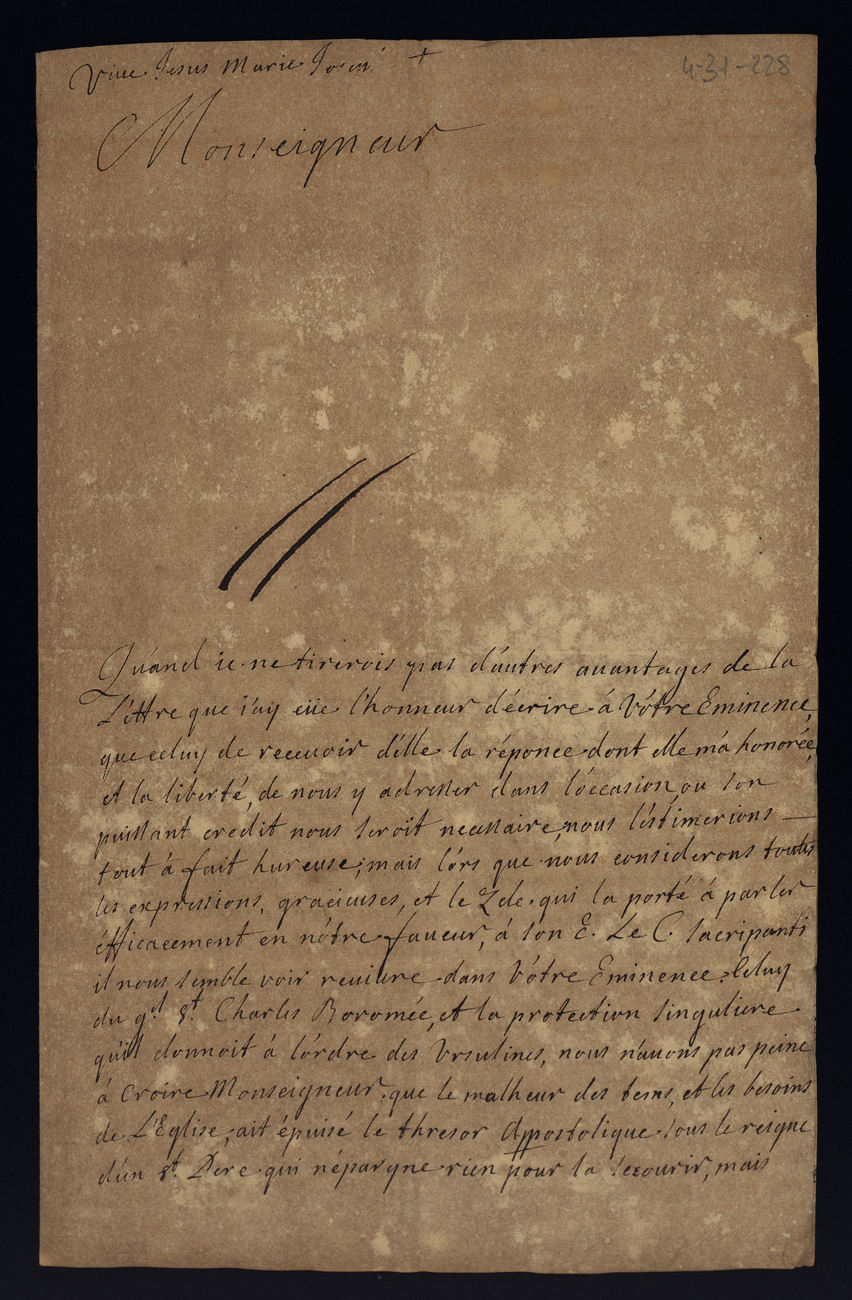 Viue Jesus Marie Josph +
4-31-228
Monseigneur
Quand ie ne tirerois pas d'autres auantages de la
Léttre que i'ay eüe l'honneur d'écrire á Vótre Eminence,
que celuy de receuoir d'élle la réponce dont elle m'a honorée,
et la liberté, de nous y adresser dans l'óccasion, ou son
puissant credit nous seroit necessaire, nous l'éstimerions —
tout á fait hureuse, mais lórs que nous considerons toutes
les expressions, gracieuses, et le Zele qui la porté á parler
éfficacement en nótre faueur, á son E. Le C. Sacripanti
il nous semble voir reuiure dans Vótre Eminence Celuy
du gd. St. Charles Boromée, et la protection singuliere
qu'il donnoit á lórdre des Vrsulines, nous n'auons pas peine
á croire Monseigneur, que le malheur des tems, et les besoins
de L'Eglise, ait épuisé le thresor Appostolique sous le reigne
d'un st. Pere qui n'épargne rien pour la secourir, mais